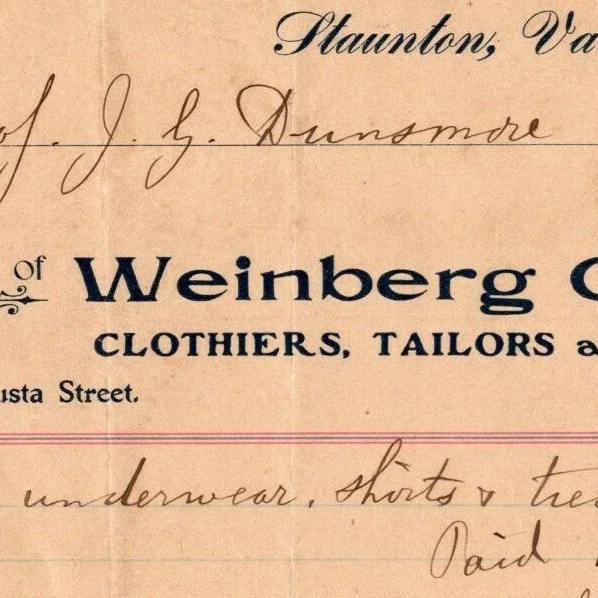 Staunton, Va
of. J. G. Dunsmore
of Weinberg C
CLOTHIERS, TAILORS a
usta Street.
underwear, shirts & ties
Paid